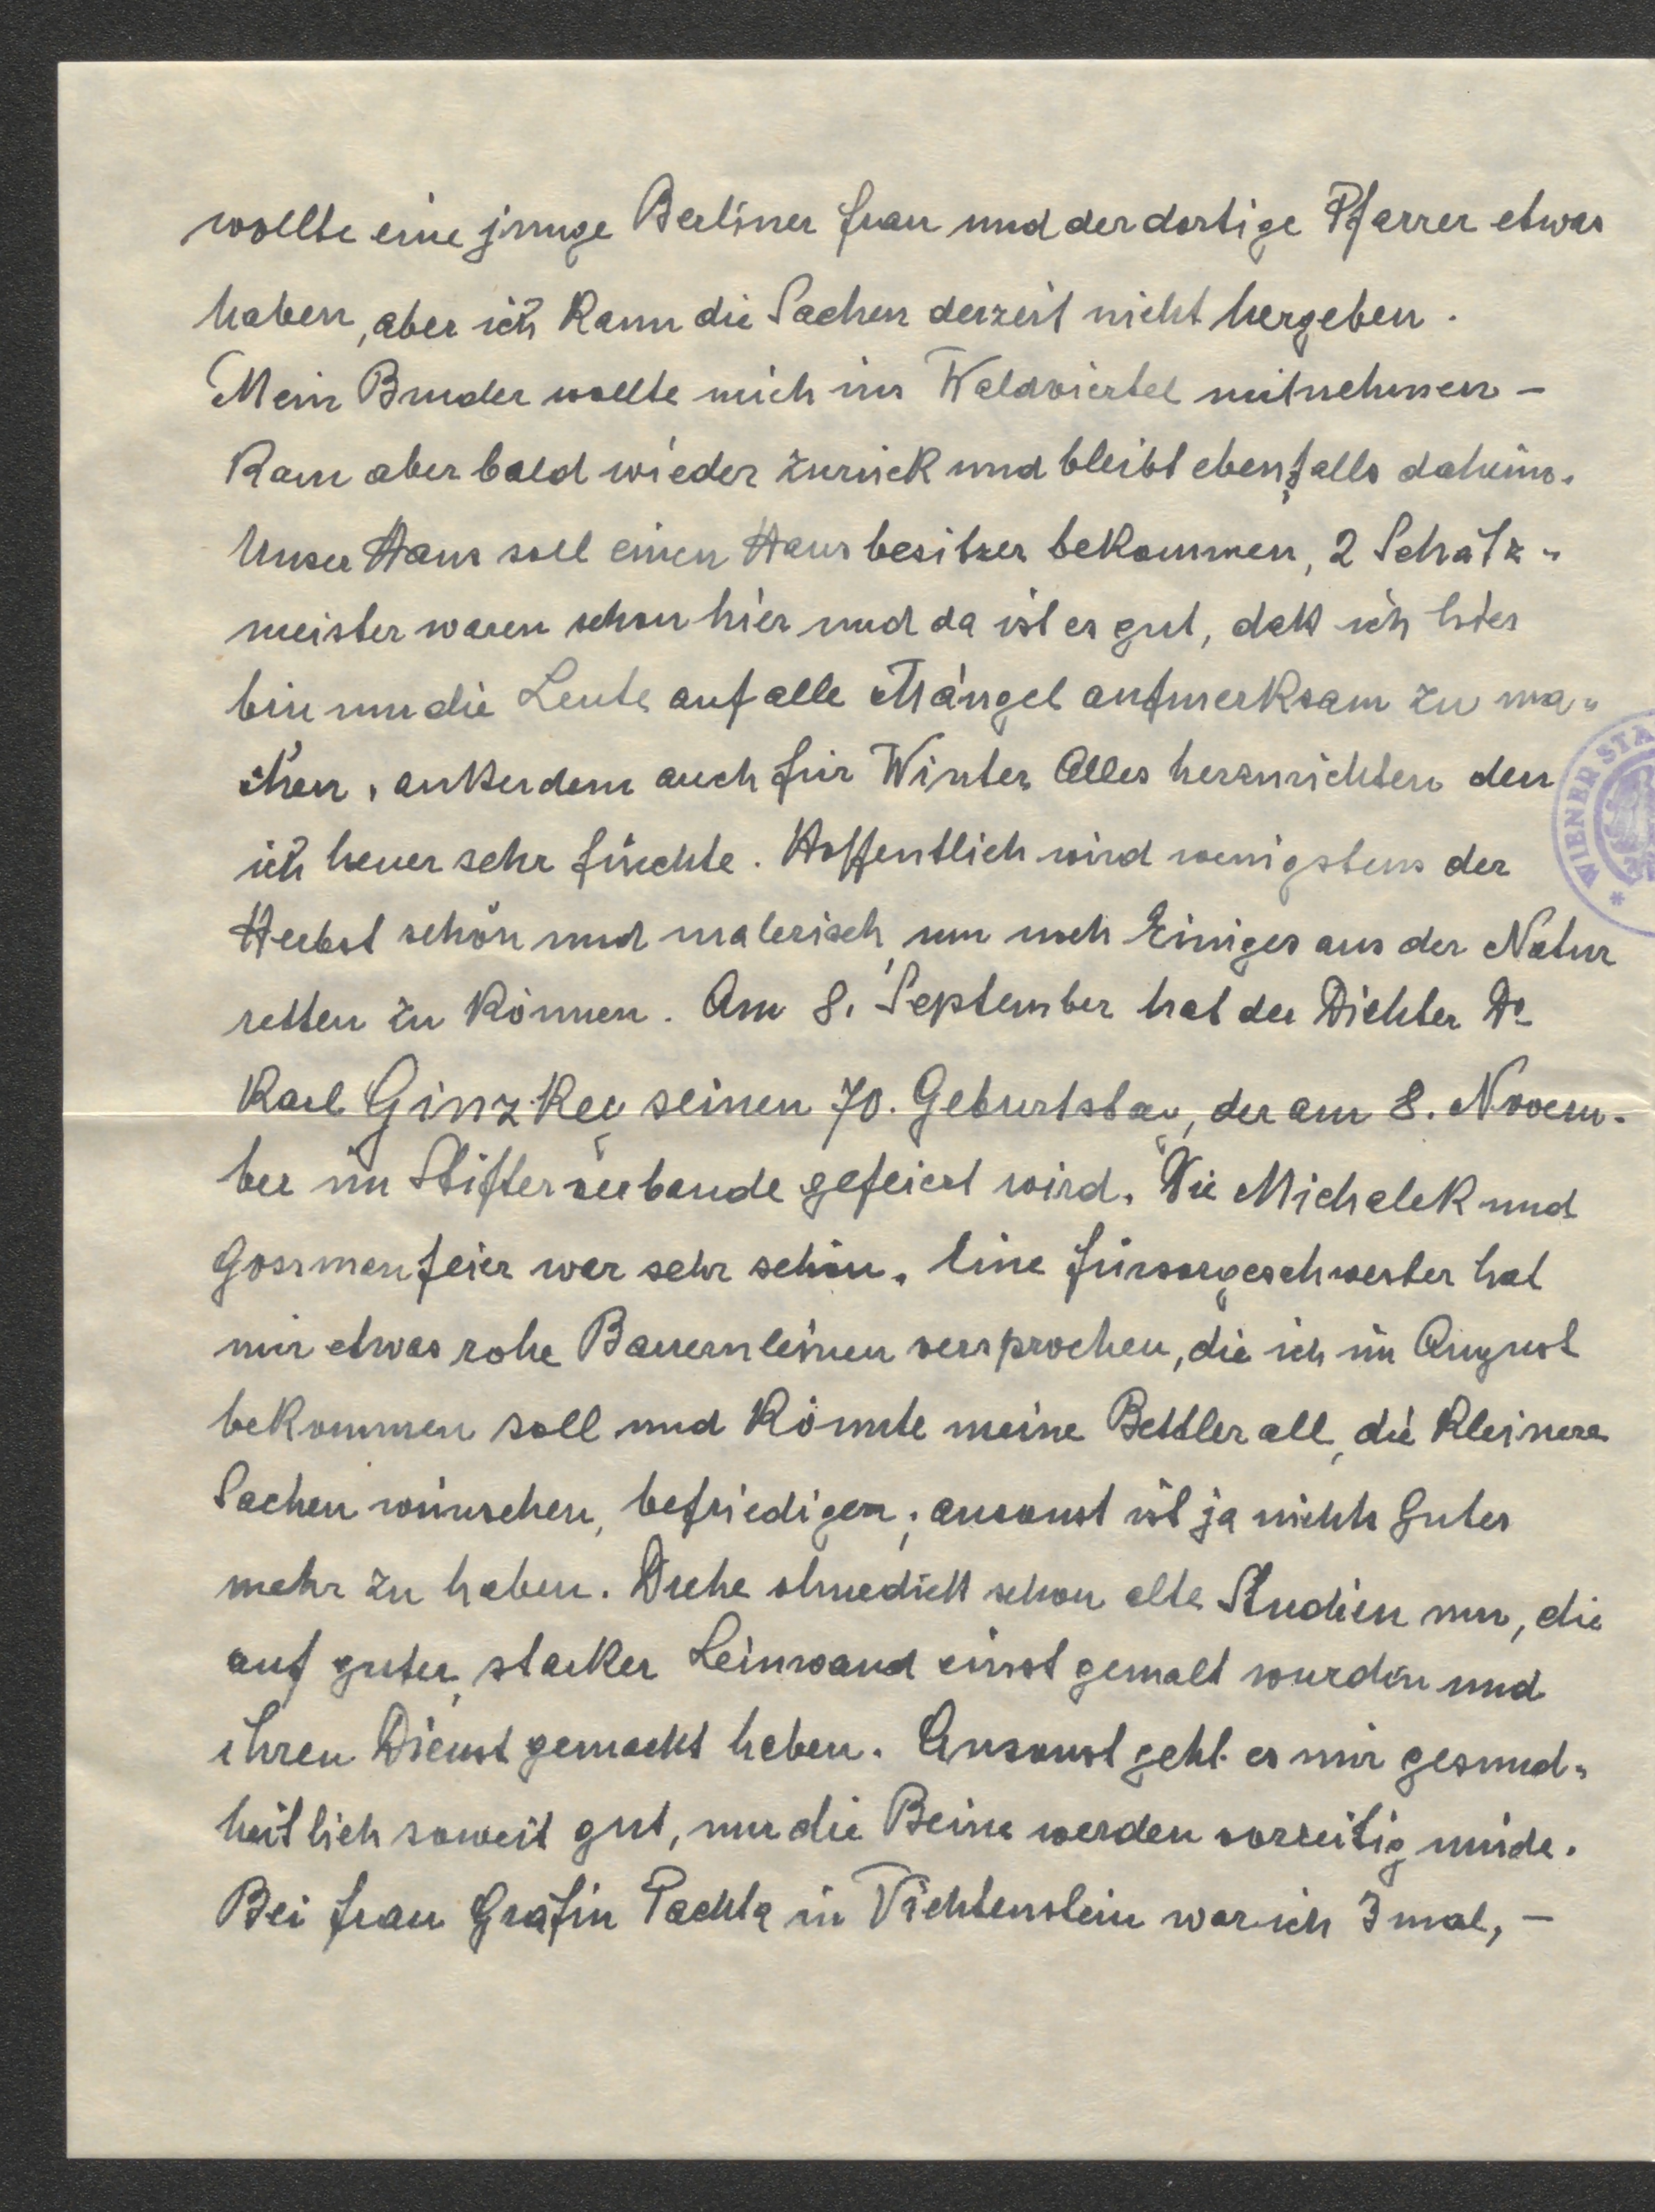 wollte eine junge Berliner Frau und der dortige Pfarrer etwas
haben, aber ich kann die Sachen derzeit nicht hergeben.
Mein Bruder wollte mich ins Waldviertel mitnehmen -
kam aber bald wieder zurück und bleibt ebenfalls daheim.
Unser Haus soll einen Hausbesitzer bekommen, 2 Schätz-
meister waren schon hier und da ist es gut, daß ich hier
bin um die Leute auf alle Mängel aufmerksam zu ma-
chen, außerdem auch für Winter Alles herzurichten den
ich heuer sehr fürchte. Hoffentlich wird wenigstens der
Herbst schön und malerisch, um noch Einiges aus der Natur
retten zu können. Am 8. September hat der Dichter Dr
Karl Ginzkey seinen 70. Geburtstag, der am 8. Novem-
ber im Stifterverbande gefeiert wird. Die Michalek und
Gossmanfeier war sehr schön. Eine Fürsorgeschwester hat
mir etwas rohe Bauernleinen versprochen, die ich im August
bekommen soll und könnte meine Bettler all, die kleinere
Sachen wünschen, befriedigen; ansonst ist ja nichts Gutes
mehr zu haben. Drehe ohnedies schon alte Studien um, die
auf guter, starker Leinwand einst gemalt wurden und
ihren Dienst gemacht haben. Ansonst geht es mir gesund-
heitlich soweit gut, nur die Beine werden vorzeitig müde.
Bei Frau Gräfin Pachta in Vichtenstein war ich 3 mal, -
WIENER STA